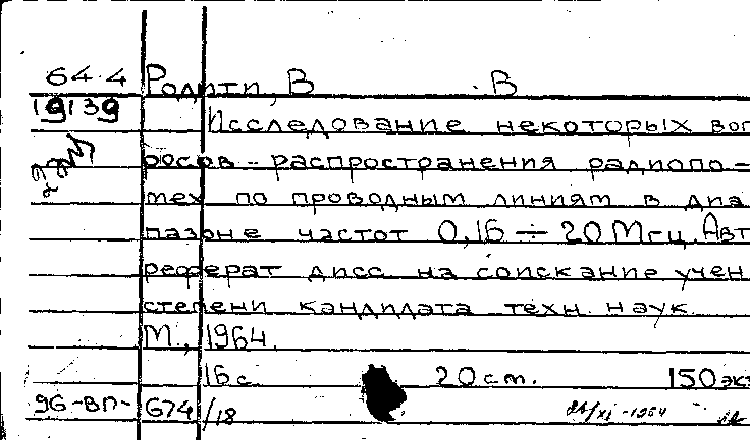 64.4 Родити, В. В
19139
Исследование некоторых воп
росов - распространения радиопо-
мех по проводным линиям в диа
пазоне частот 0,16 ÷ 20 Мгц. Авт
реферат дисс на соискание учен
степени кандидата техн. наук
М., 1964.
16 с. 20 см. 150 экз
96-ВП- 674/18 26/XI-1964